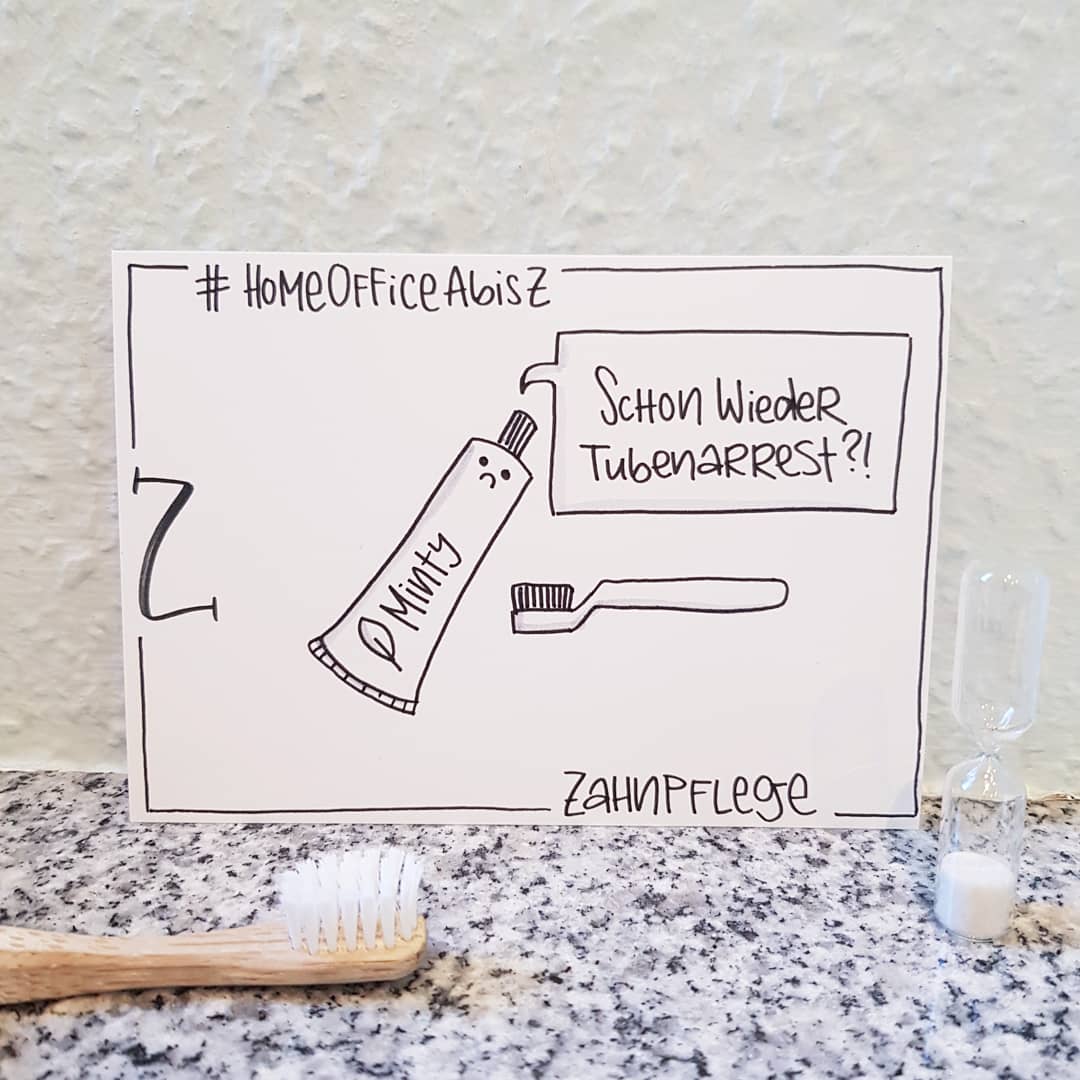 # HomeOfficeAbisZ
Schon wieder
Tubenarrest?!
Z
Minty
Zahnpflege